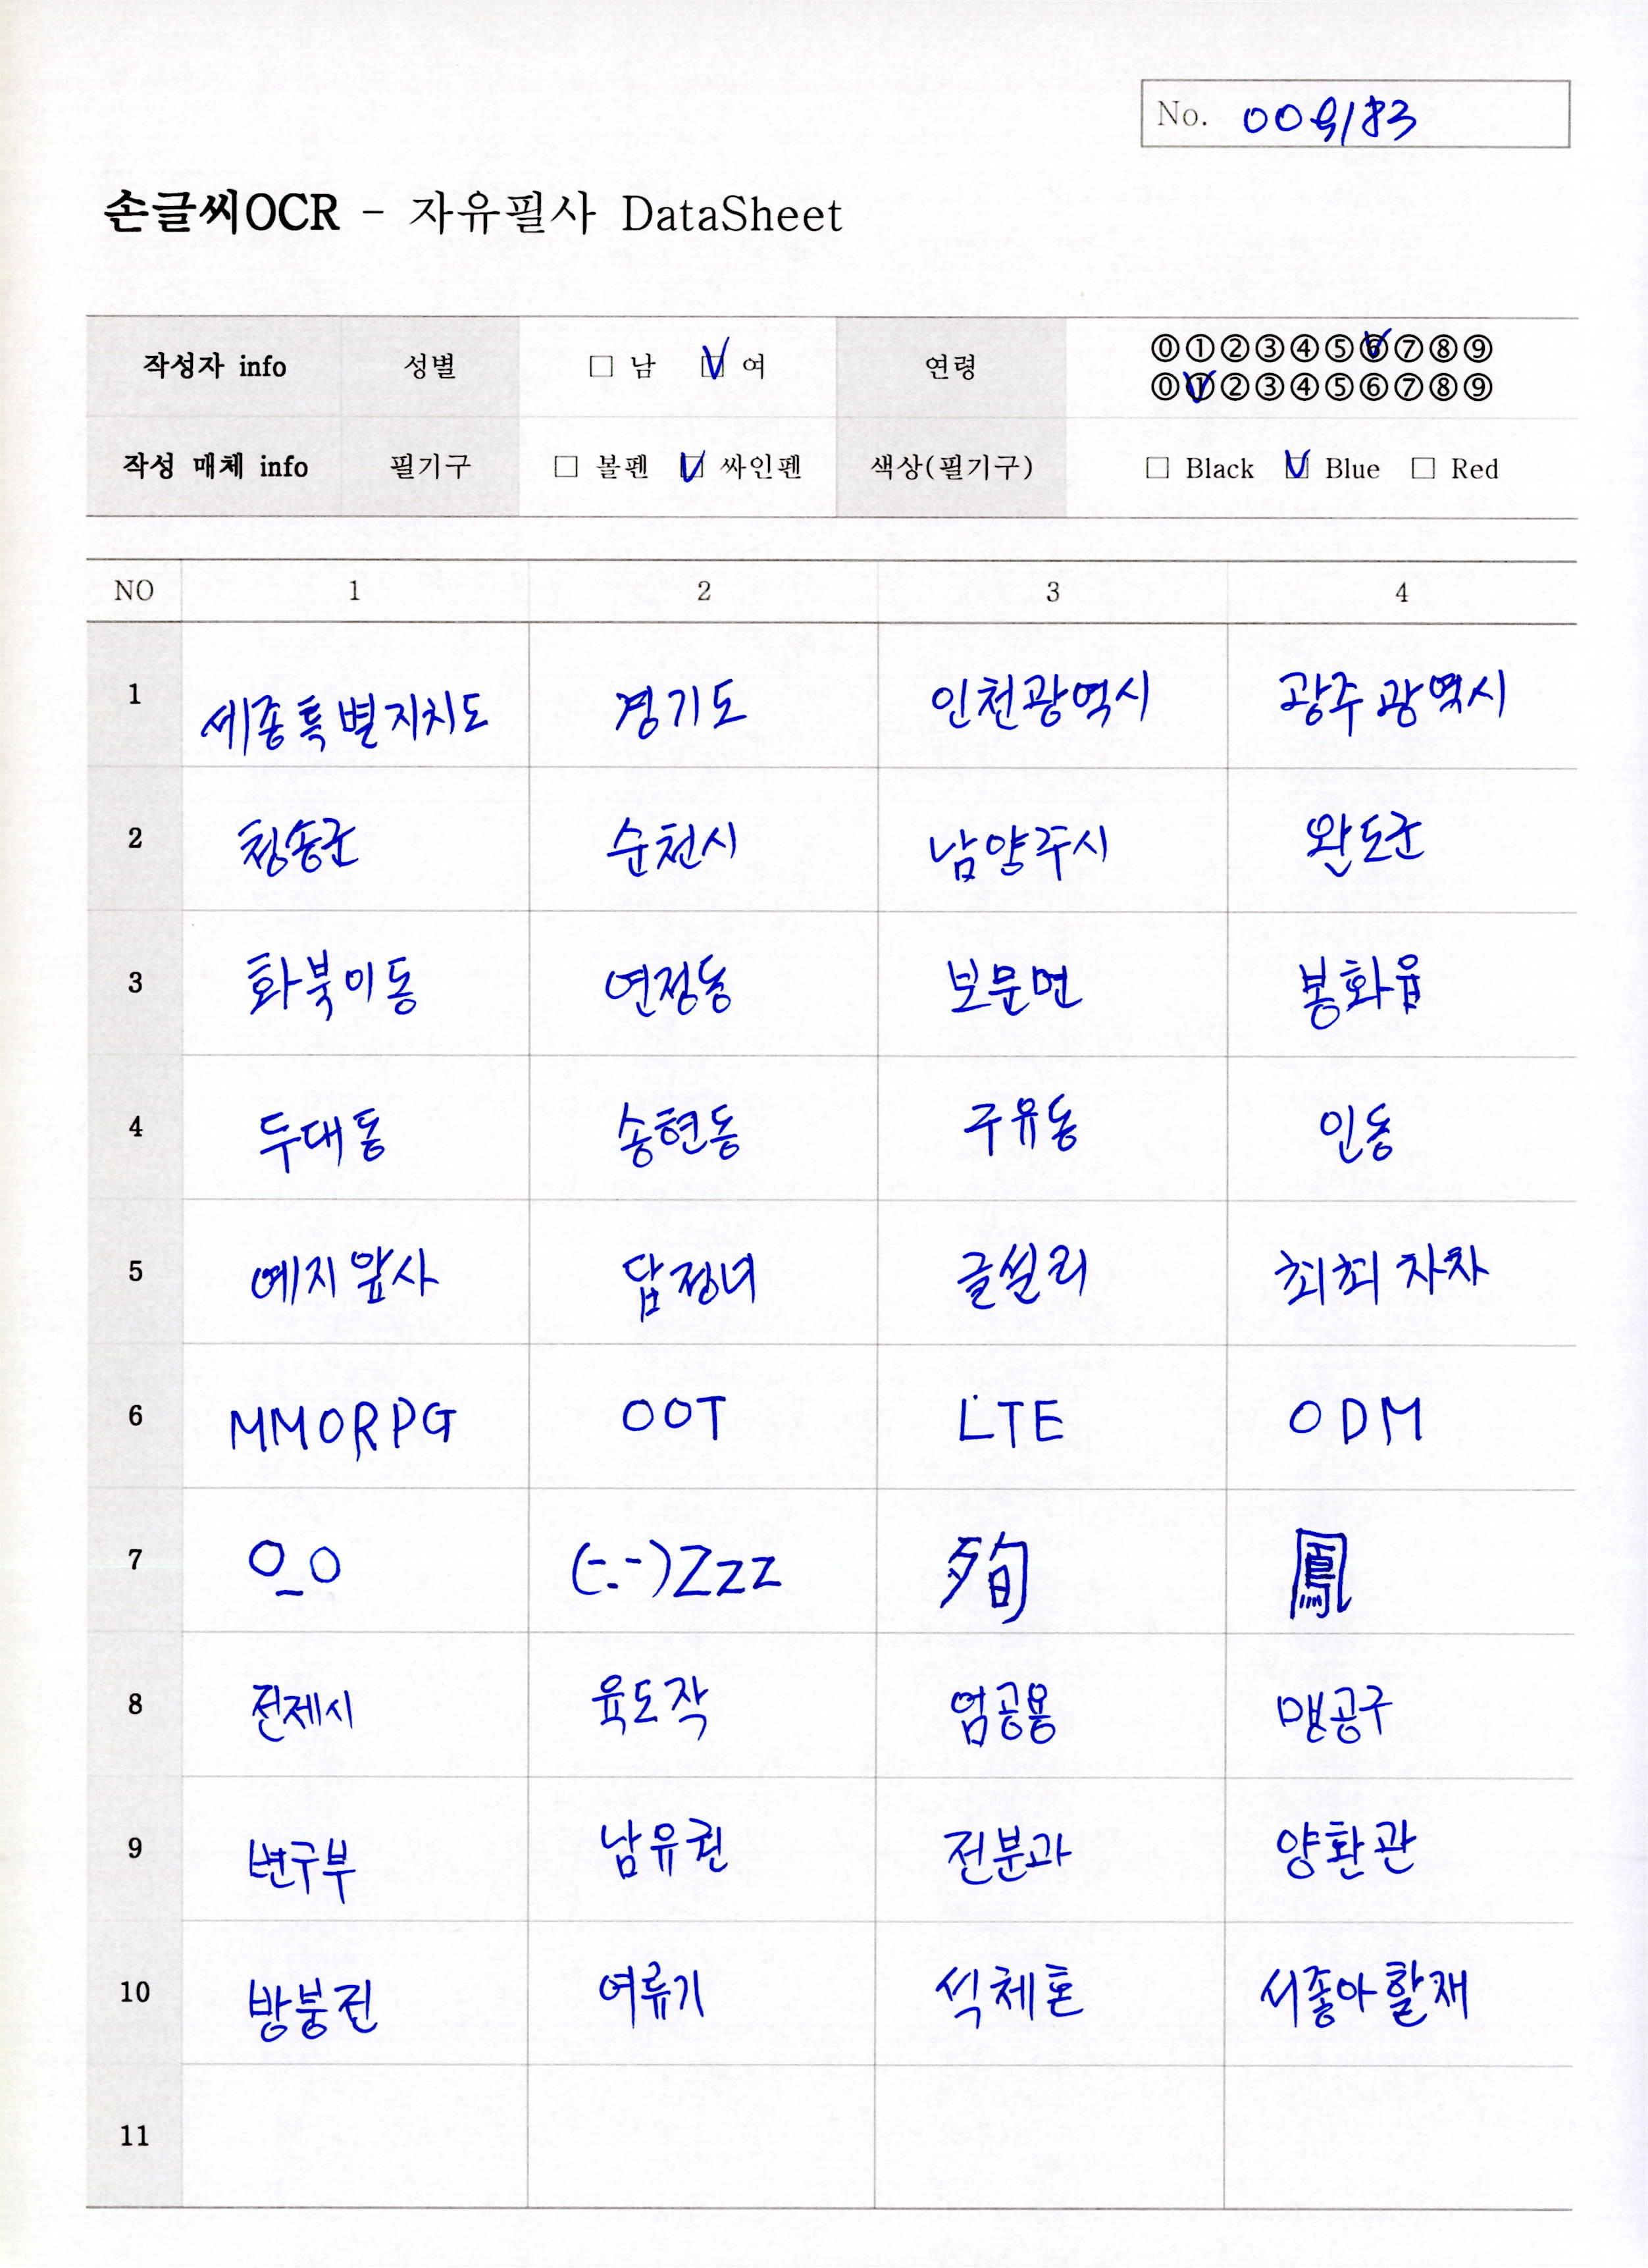 No. 009183
손글씨OCR - 자유필사 DataSheet
작성자 info 성별 □ 남 ☑ 여 연령 ⓪①②③④⑤⑥⑦⑧⑨
⓪①②③④⑤⑥⑦⑧⑨
작성 매체 info 필기구 □ 볼펜 ☑ 싸인펜 색상(필기구) □ Black ☑ Blue □ Red
NO 1 2 3 4
1 세종특별자치도 경기도 인천광역시 광주광역시
2 청송군 순천시 남양주시 완도군
3 화북이동 연정동 보문면 봉화읍
4 두대동 송현동 구유동 인동
5 예지앞사 답정녀 글설리 최최차차
6 MMORPG OOT LTE ODM
7 O_O (-.-)Zzz 殉 鳳
8 전제시 육도작 엄공용 맹공구
9 변구부 남유권 전분과 양환관
10 방붕전 여류기 석체혼 서좋아할재
11